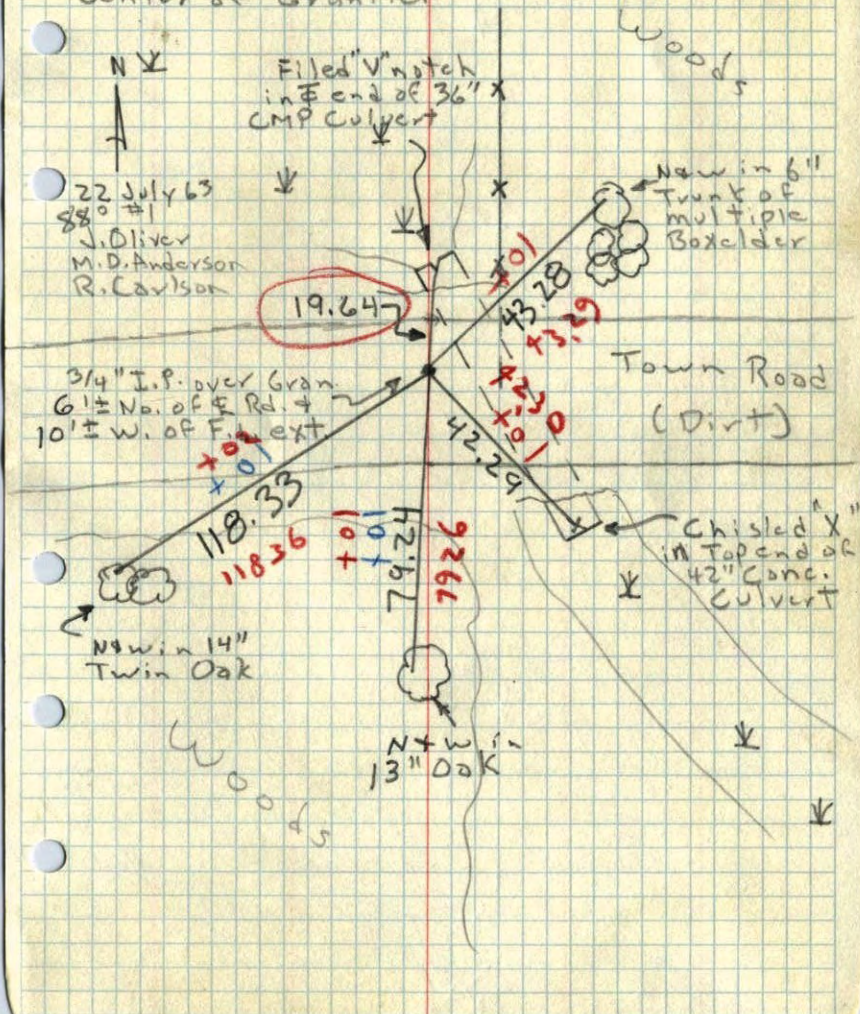 N
Filed "V" notch
in ℄ end of 36"
CMP Culvert
Woods
22 July 63
88° #1
J. Oliver
M.D. Anderson
R. Carlson
N&W in 6"
Trunk of
multiple
Boxelder
19.64
+01
43.28
43.29
Town Road
(Dirt)
3/4" I.P. over Gran.
6'± No. of ℄ Rd. &
10'± W. of Fn. ext.
4230
+01
42.29
+02
+01
118.33
11836
+01
+01
79.24
7926
Chisled "X"
in Top end of
42" Conc.
Culvert
N&W in 14"
Twin Oak
N+W in
13" Oak
Woods